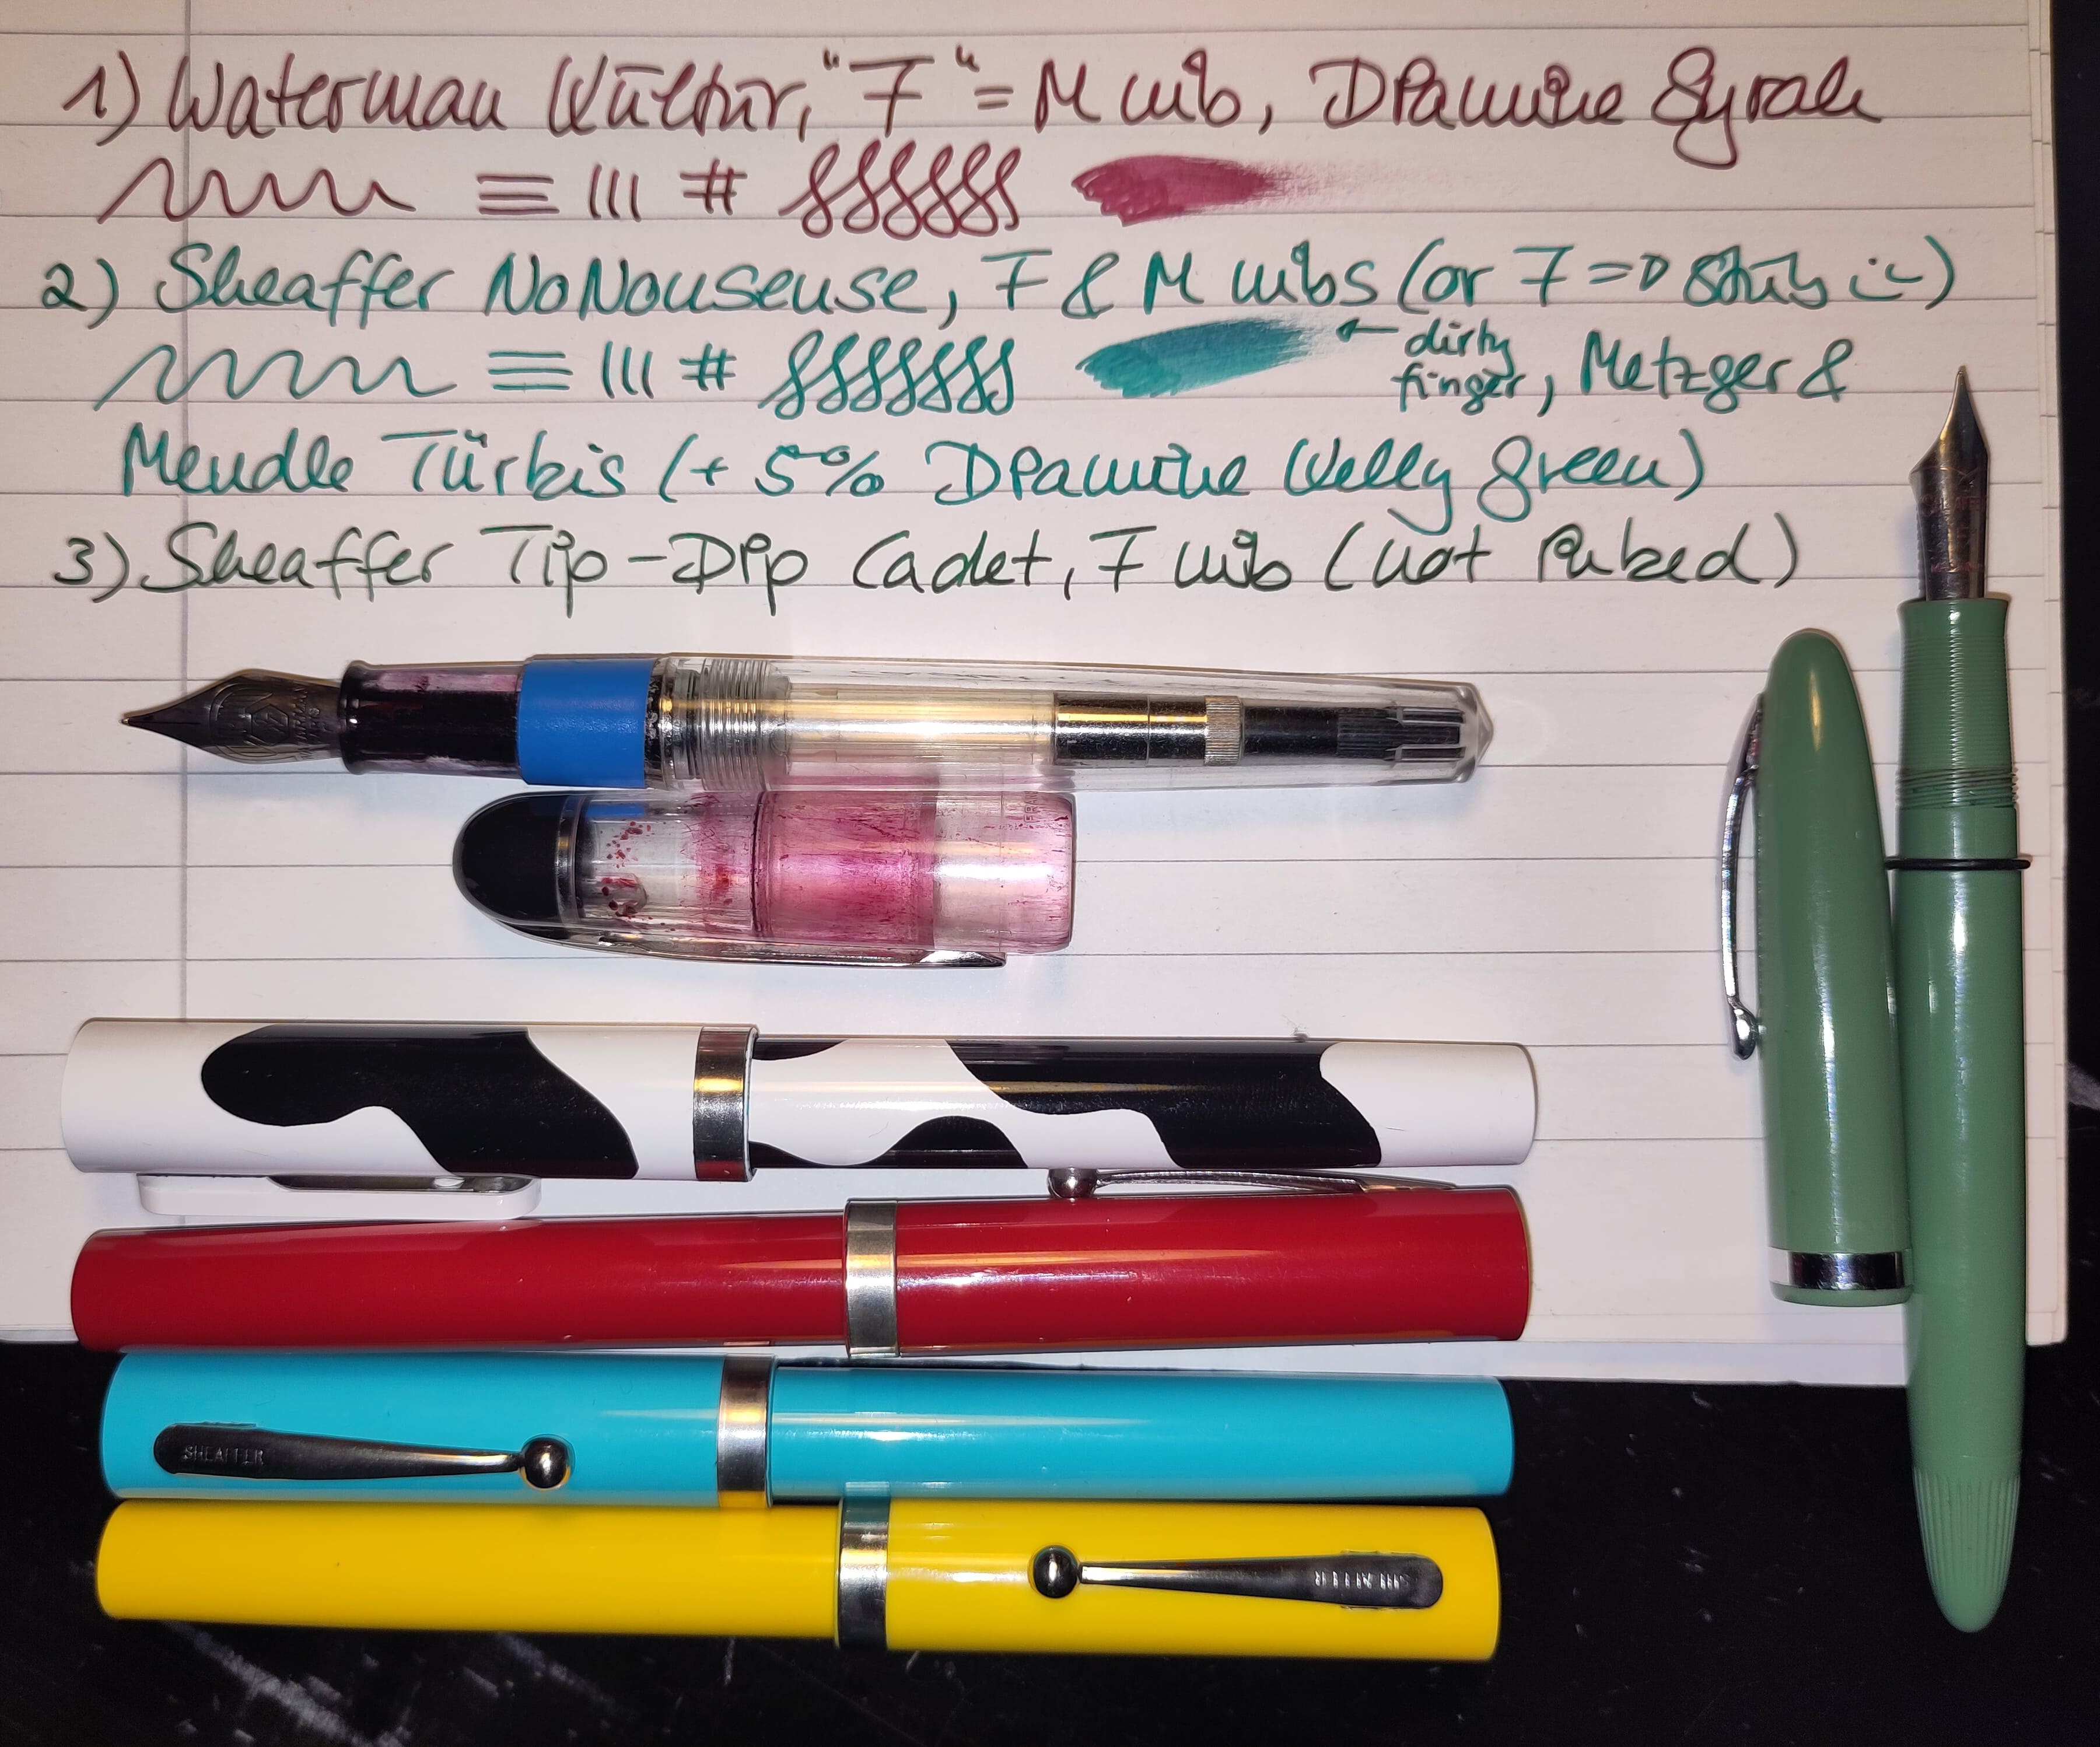 1) Waterman Kultur, "F" = M nib, Diamine Syrah
≡ ||| #
2) Sheaffer NoNonsense, F & M nibs (or F => Stub :-)
≡ ||| # ← dirty
finger, Metzger &
Mendle Türkis (+ 5% Diamine Kelly Green)
3) Sheaffer Tip-Dip Cadet, F nib (not inked)
SHEAFFER
SHEAFFER